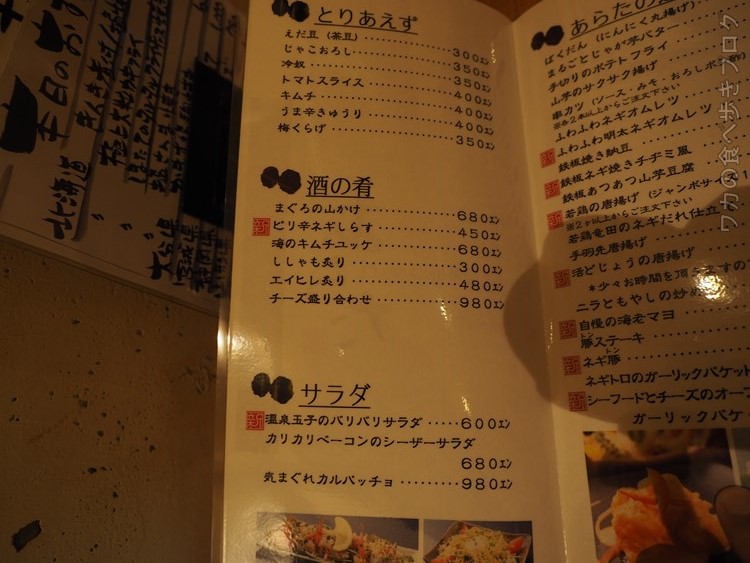 とりあえず
えだ豆（茶豆）‥‥‥‥‥‥300エン
じゃこおろし‥‥‥‥‥‥350エン
冷奴‥‥‥‥‥‥350エン
トマトスライス‥‥‥‥‥‥400エン
キムチ‥‥‥‥‥‥400エン
うま辛きゅうり‥‥‥‥‥‥400エン
梅くらげ‥‥‥‥‥‥350エン
酒の肴
まぐろの山かけ‥‥‥‥‥‥680エン
新 ピリ辛ネギしらす‥‥‥‥‥‥450エン
海のキムチユッケ‥‥‥‥‥‥680エン
ししゃも炙り‥‥‥‥‥‥300エン
エイヒレ炙り‥‥‥‥‥‥480エン
チーズ盛り合わせ‥‥‥‥‥‥980エン
サラダ
新 温泉玉子のバリバリサラダ‥‥‥600エン
カリカリベーコンのシーザーサラダ
680エン
気まぐれカルパッチョ‥‥‥‥980エン
あらたの
ばくだん（にんにく丸揚げ）
まるごとじゃが芋バター
手切りのポテトフライ
山芋のサクサク揚げ
串カツ（ソース・みそ・おろしポン酢）
※各2本以上からご注文下さい
ふわふわネギオムレツ
ふわふわ明太ネギオムレツ
新 鉄板焼き納豆
鉄板ネギ焼きチヂミ風
新 鉄板あつあつ山芋豆腐
新 若鶏の唐揚げ（ジャンボサイズ1
※2ヶ以上からご注文下さい
若鶏竜田のネギだれ仕立
手羽先唐揚げ
新 活どじょうの唐揚げ
＊少々お時間を頂きますの
ニラともやしの炒め
新 自慢の海老マヨ
豚ステーキ
トン
新 ネギ豚
トン
ネギトロのガーリックバケット
新 シーフードとチーズのオーブ
ガーリックバケッ
本日のおす
北海道
ワカの食べ歩きブログ